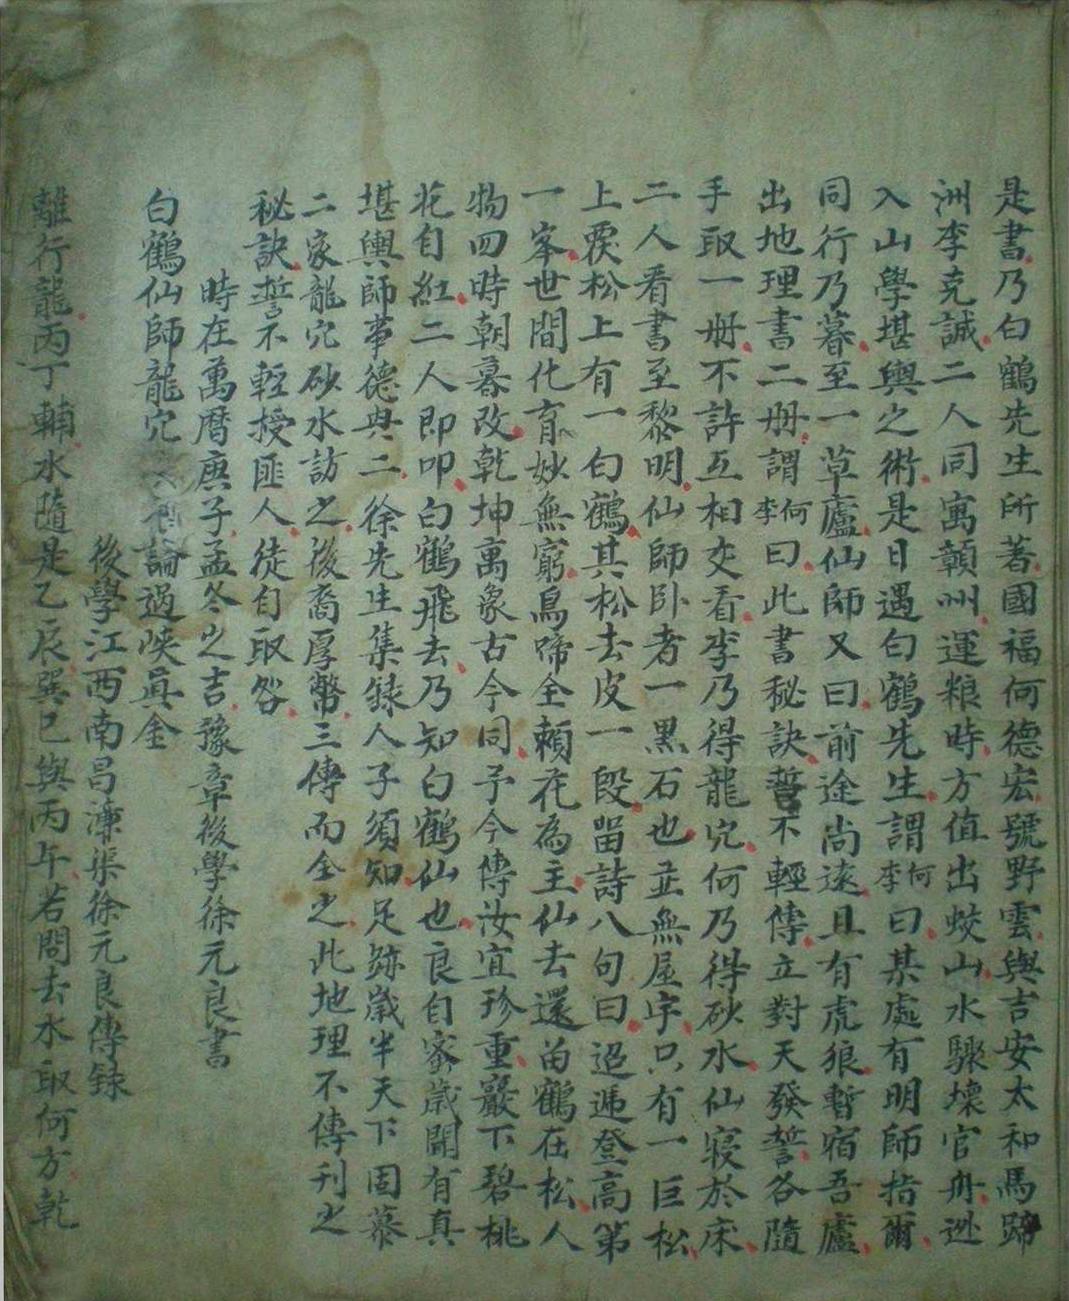 是書乃白鶴先生所著國福何德宏號野雲與吉安太和馬蹄
洲李克誠二人同寓贛州運粮時方值出蛟山水驟壞官舟逃
入山學堪輿之術是日遇白鶴先生謂何李曰某處有明師指爾
同行乃暮至一草廬仙師又曰前途尚遠且有虎狼暫宿吾廬
出地理書二冊謂何李曰此書秘訣誓不輕傳立對天發誓各隨
手取一冊不許互相交看李乃得龍穴何乃得砂水仙寢於床
二人看書至黎明仙師卧者一黑石也並無屋宇只有一巨松
上覆松上有一白鶴其松去皮一段畄詩八句曰迢遞登高第
一峯世間化育妙無窮鳥啼全賴花為主仙去還畄鶴在松人
物四時朝暮改乾坤萬象古今同予今傳汝宜珍重巖下碧桃
花自紅二人即叩白鶴飛去乃知白鶴仙也良自蜜歲聞有真
堪輿師葦德與二徐先生集錄人子須知足跡歲半天下固慕
二家龍穴砂水訪之後裔厚幣三傳而全之此地理不傳刊之
秘訣誓不輕授匪人徒自取咎
時在萬曆庚子孟冬之吉豫章後學徐元良書
白鶴仙師龍穴論過峽眞金
後學江西南昌濂渠徐元良傳録
離行龍丙丁輔水隨是乙辰巽巳與丙午若問去水取何方乾